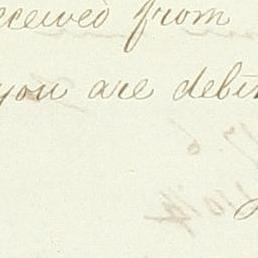 received from
you are debi